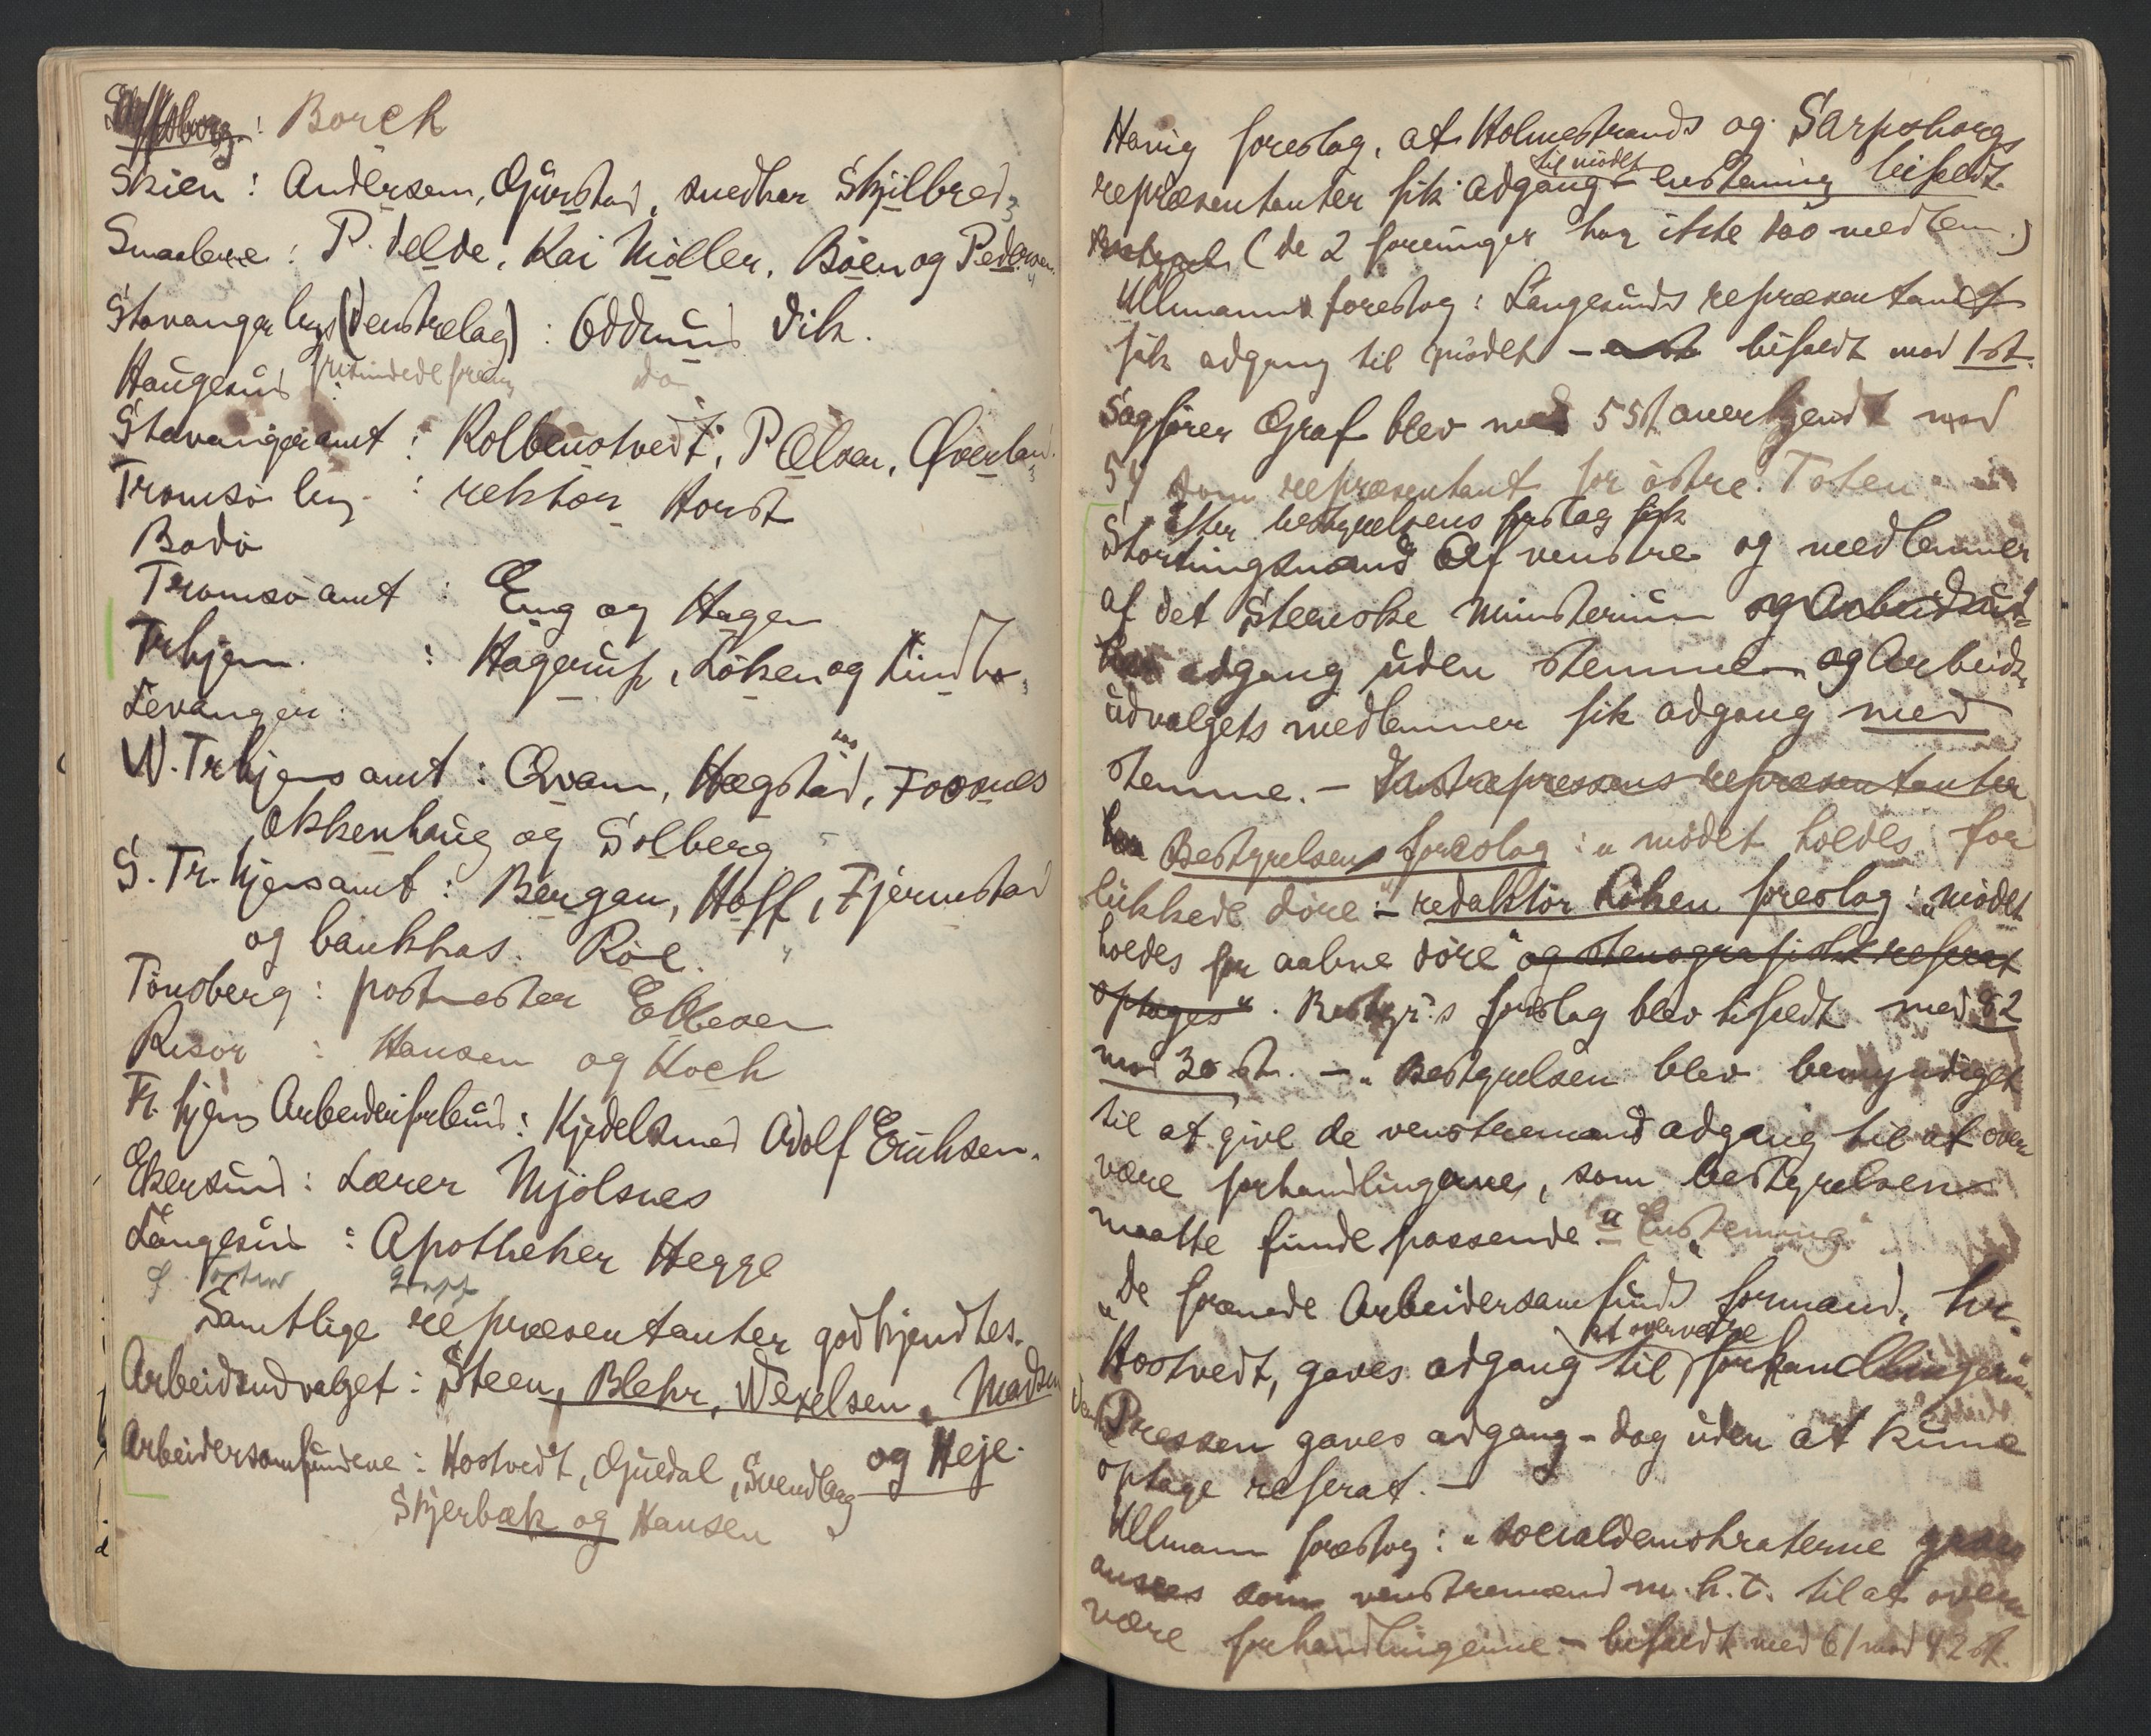 Borch
Skien: Andersen, Gjurstad, snedker Skjilbred,
Smaalene: P. Velde, Kai Møller, Bøen og Pedersen
Stavanger by (venstrelag): Oddmund Vik.
Haugesund frisindede foren do
Stavanger amt: Kolbenstvedt, P Olsen, Øverland
Tromsø by: rektor Horst
Bodø
Tromsø amt: Eng og Hagen
Trhjem: Hagerup, Løken og Lindbo,
Levanger:
N. Trhjems amt: Qvam, Hægstad, Foosnæs
Okkenhaug og Solberg
S. Tr.hjems amt: Bergan, Hoff, Fjermstad
og bankkas. Røe.
Tønsberg: postmester Ebbesen
Risør: Hansen og Hoch
Tr.hjems Arbeiderforbund: Kjedelsmed Adolf Eriksen.
Ekersund: Lærer Mjølsnes
Langesund: Apotheker Hegge
Samtlige repræsentanter godkjendtes.
Arbeidsudvalget: Steen, Blehr, Wexelsen, Madsen
og Heje.
Arbeidersamfundene: Hostvedt, Gjuedal, Svendberg
Skjerbæk og Hansen
foreslog, at Holmestrands og Sarpsborgs
til mødet
repræsentanter fik adgang – enstemmig bifaldt.
(de 2 foreninger har ikke 100 medlem.)
Ullmanns foreslog: Langesunds repræsentant
fik adgang til mødet – bifaldt mod 1 st.
Sagfører Graf blev med 55 st anerkjendt mod
54 som repræsentant for østre Toten
Efter bestyrelsens forslag fik
Stortingsmænd af venstre og medlemmer
af det Steenske ministerium og Arbeidsud-
adgang uden stemme og Arbeids-
udvalgets medlemmer fik adgang med
stemme. – Venstrepressens repræsentanter
Bestyrelsens foreslog: "mødet holdes for
lukkede døre" – redaktør Løken foreslog: "mødet
holdes for aabne døre" og stenografisk referat
optages". Bestyr:s forslag blev bifaldt med 82
mod 30 st. – "Bestyrelsen blev bemyndiget
til at give de venstremænd adgang til at over
være forhandlingerne, som bestyrelsen
maatte finde passende" Enstemmig
"De forenede Arbeidersamfunds formand, hr.
at overvære
Hostvedt, gaves adgang til forhandlingerne
Pressen gaves adgang – dog uden at kunne
optage referat. –
Ullmann foreslog: "socialdemokraterne
ansees som venstremænd m.h.t. til at over
være forhandlingerne – bifaldt med 61 mod 42 st.